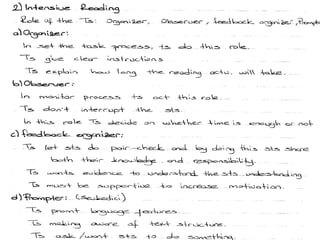 2) Intensive Reading
Role of the Ts: Organizer, Observer, feedback organizer, Prompter
a) Organizer:
In set the task process, ts do this role.
Ts give clear instructions
Ts explain how long the reading actv. will take.
b) Observer:
In monitor process ts act this role.
Ts don't interrupt the sts.
In this role Ts decide on whether time is enough or not
c) feedback organizer:
Ts let sts do pair-check and by doing this sts share
both their knowledge and responsibility.
Ts wants evidence to understand the sts. understanding
Ts must be supportive to increase motivation.
d) Prompter:
Ts promt language features.
Ts making aware of text structure.
Ts ask / want sts to do something.